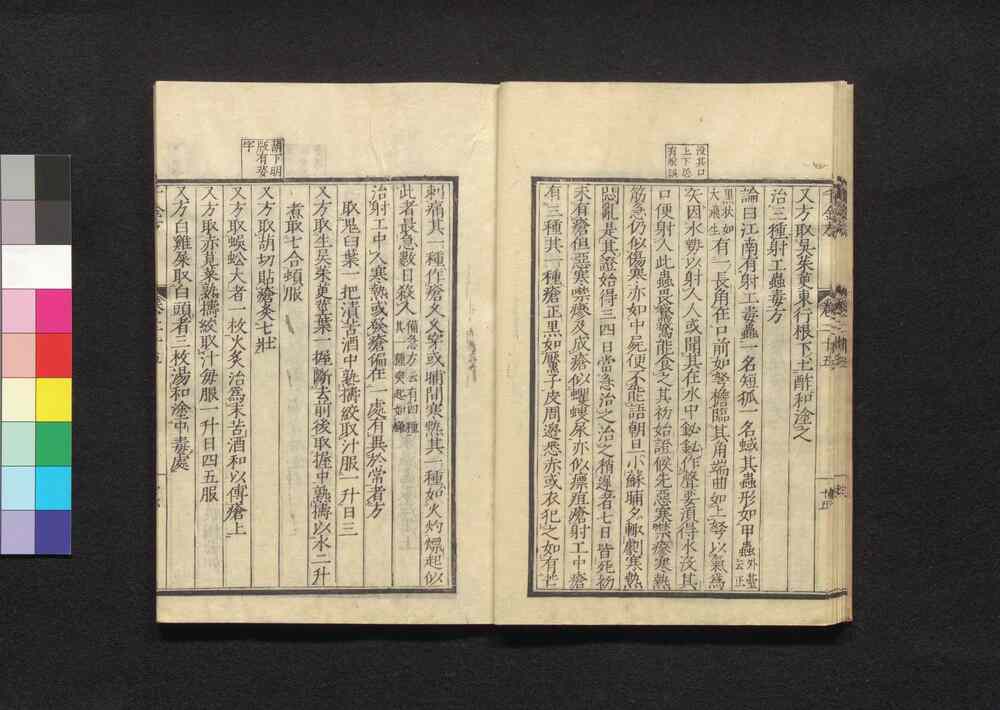 没其口
上下恐
有脫誤
又方取吳茱萸東行根下土酢和塗之
治三種射工蟲毒方
論曰江南有射工毒蟲一名短狐一名蜮其蟲形如甲蟲外臺云正
黑狀如大飛生有一長角在口前如弩檐臨其角端曲如上弩以氣爲
矢因水勢以射人人或聞其在水中鉍鉍作聲要須得水没其
口便射人此蟲畏鵞鵞能食之其初始證候先惡寒噤瘮寒熱
筋急仍似傷寒亦如中尸便不能語朝旦小蘇晡夕輒劇寒熱
悶亂是其證始得三四日當急治之治之稍遲者七日皆死初
未有瘡但惡寒噤瘮及成瘡似蠼螋尿亦似瘭疽瘡射工中瘡
有三種其一種瘡正黑如黶子皮周邊悉赤或衣犯之如有芒
葫下明
版有葵
字
刺痛其一種作瘡久久穿或晡間寒熱其一種如火灼熛起似
此者最急數日殺人備急方云有四種其一種突起如癤
治射工中人寒熱或發瘡偏在一處有異於常者方
取鬼臼葉一把漬苦酒中熟擣絞取汁服一升日三
又方取生吳茱萸莖葉一握斷去前後取握中熟擣以水二升
煮取七合頓服
又方取葫切貼瘡灸七壯
又方取蜈蚣大者一枚火炙治爲末苦酒和以傅瘡上
又方取赤莧莱熟擣絞取汁每服一升日四五服
又方白雞屎取白頭者三枚湯和塗中毒處